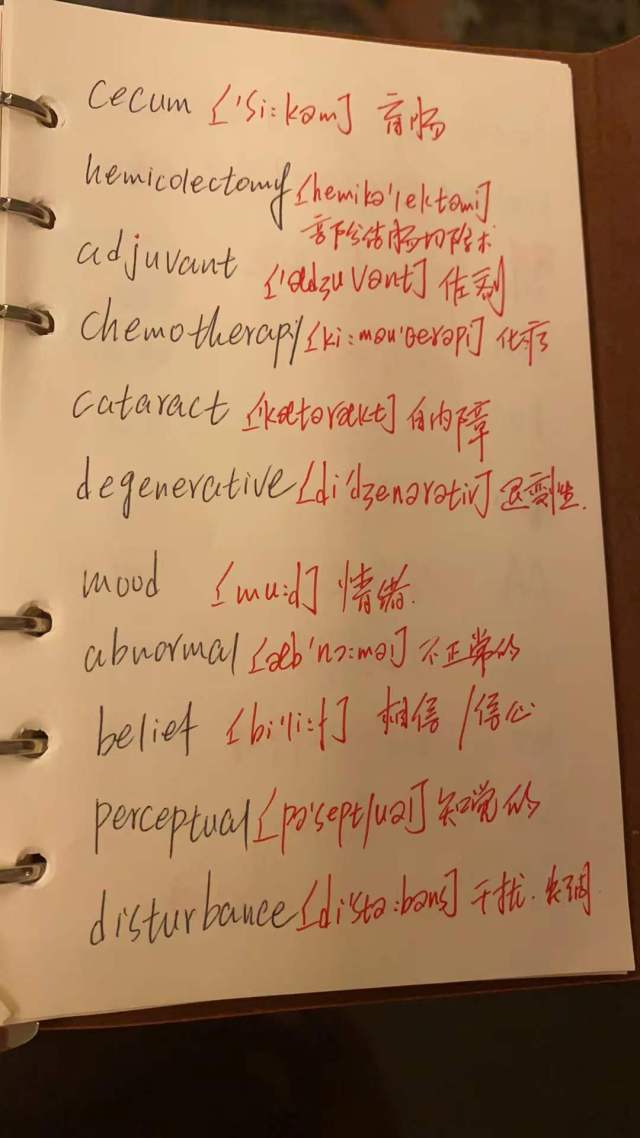 cecum ['si:kəm] 盲肠
hemicolectomy [hemikə'lektəmi]
部分结肠切除术
adjuvant ['ædʒuvənt] 佐剂
chemotherapy [ki:məu'θerəpi] 化疗
cataract ['kætərækt] 白内障
degenerative [di'dʒenərətiv] 退变性.
mood [mu:d] 情绪.
abnormal [æb'nɔ:məl] 不正常的
belief [bi'li:f] 相信/信心
perceptual [pə'septʃuəl] 知觉的
disturbance [di'stə:bəns] 干扰.失调.